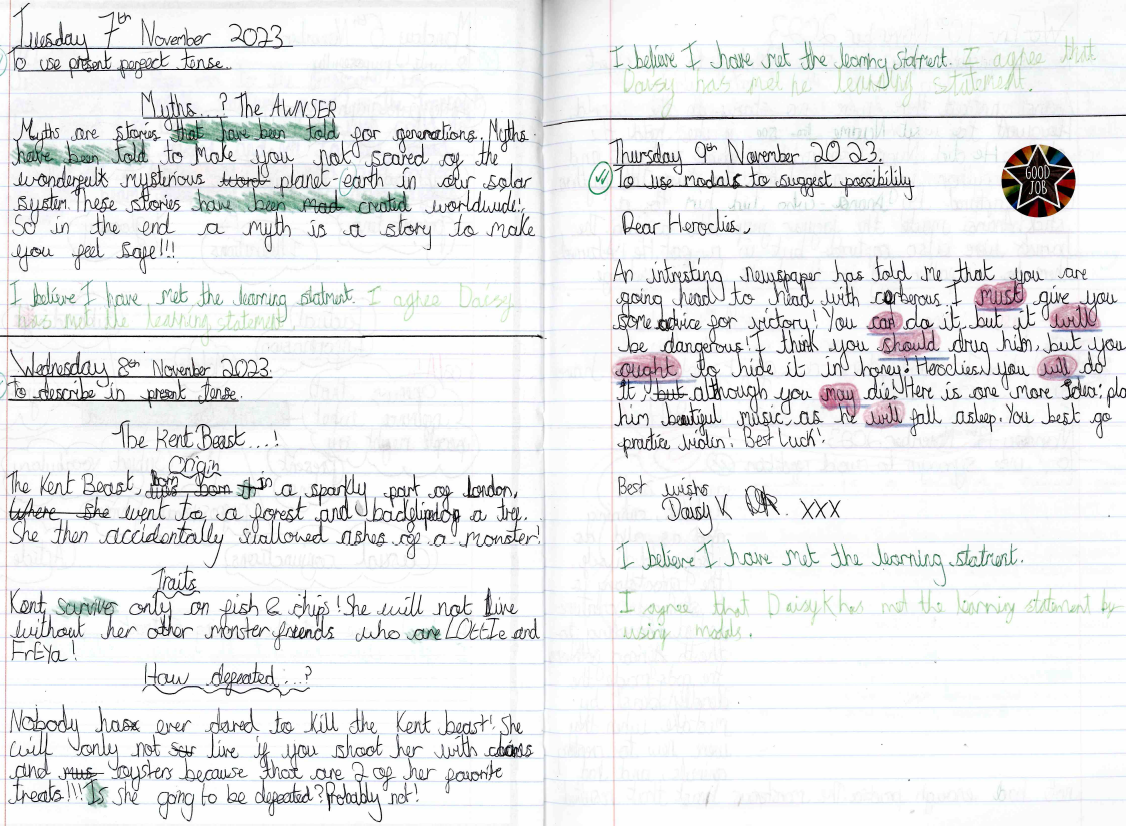 Tuesday 7th November 2023
To use present perfect tense.
Myths...? The AWNSER
Myths are stories that have been told for generations. Myths
have been told to make you not scared of the
wonderfult mysterious word planet-earth in our solar
system. These stories have been mad created worldwide!
So in the end a myth is a story to make
you feel safe!!!
I believe I have met the learning statment. I agree Daisy
has met the learning statement.
Wednesday 8th November 2023.
To describe in present tense.
The Kent Beast...!
Origin
The Kent Beast, born in a sparkly part of london,
Where she went to a forest and a tree.
She then accidentally swallowed ashes of a monster!
Traits
Kent survives only on fish & chips! She will not live
without her other monster friends who are LOttIe and
FrEYa!
How defeated...?
Nobody has ever dared to kill the Kent beast! She
will only not live if you shoot her with
and oysters because that are 2 of her favorite
treats!!! Is she going to be defeated? Probably not!
I believe I have met the learning statment. I agree that
Daisy has met he learning statement.
Thursday 9th November 2023.
To use modals to suggest possibility
GOOD
JOB
Dear Heroclies,
An intresting newspaper has told me that you are
going head to head with cerberous. I must give you
some advice for victory! You can do it but it will
be dangerous! I think you should drug him, but you
ought to hide it in honey! Heroclies you will do
it, but although you may die! Here is one more idea: pla
him beautiful music, as he will fall asleep. You best go
practice violin! Best Luck!
Best wishes
Daisy K XXX
I believe I have met the learning statment.
I agree that Daisy K has met the learning statement by
using modals.